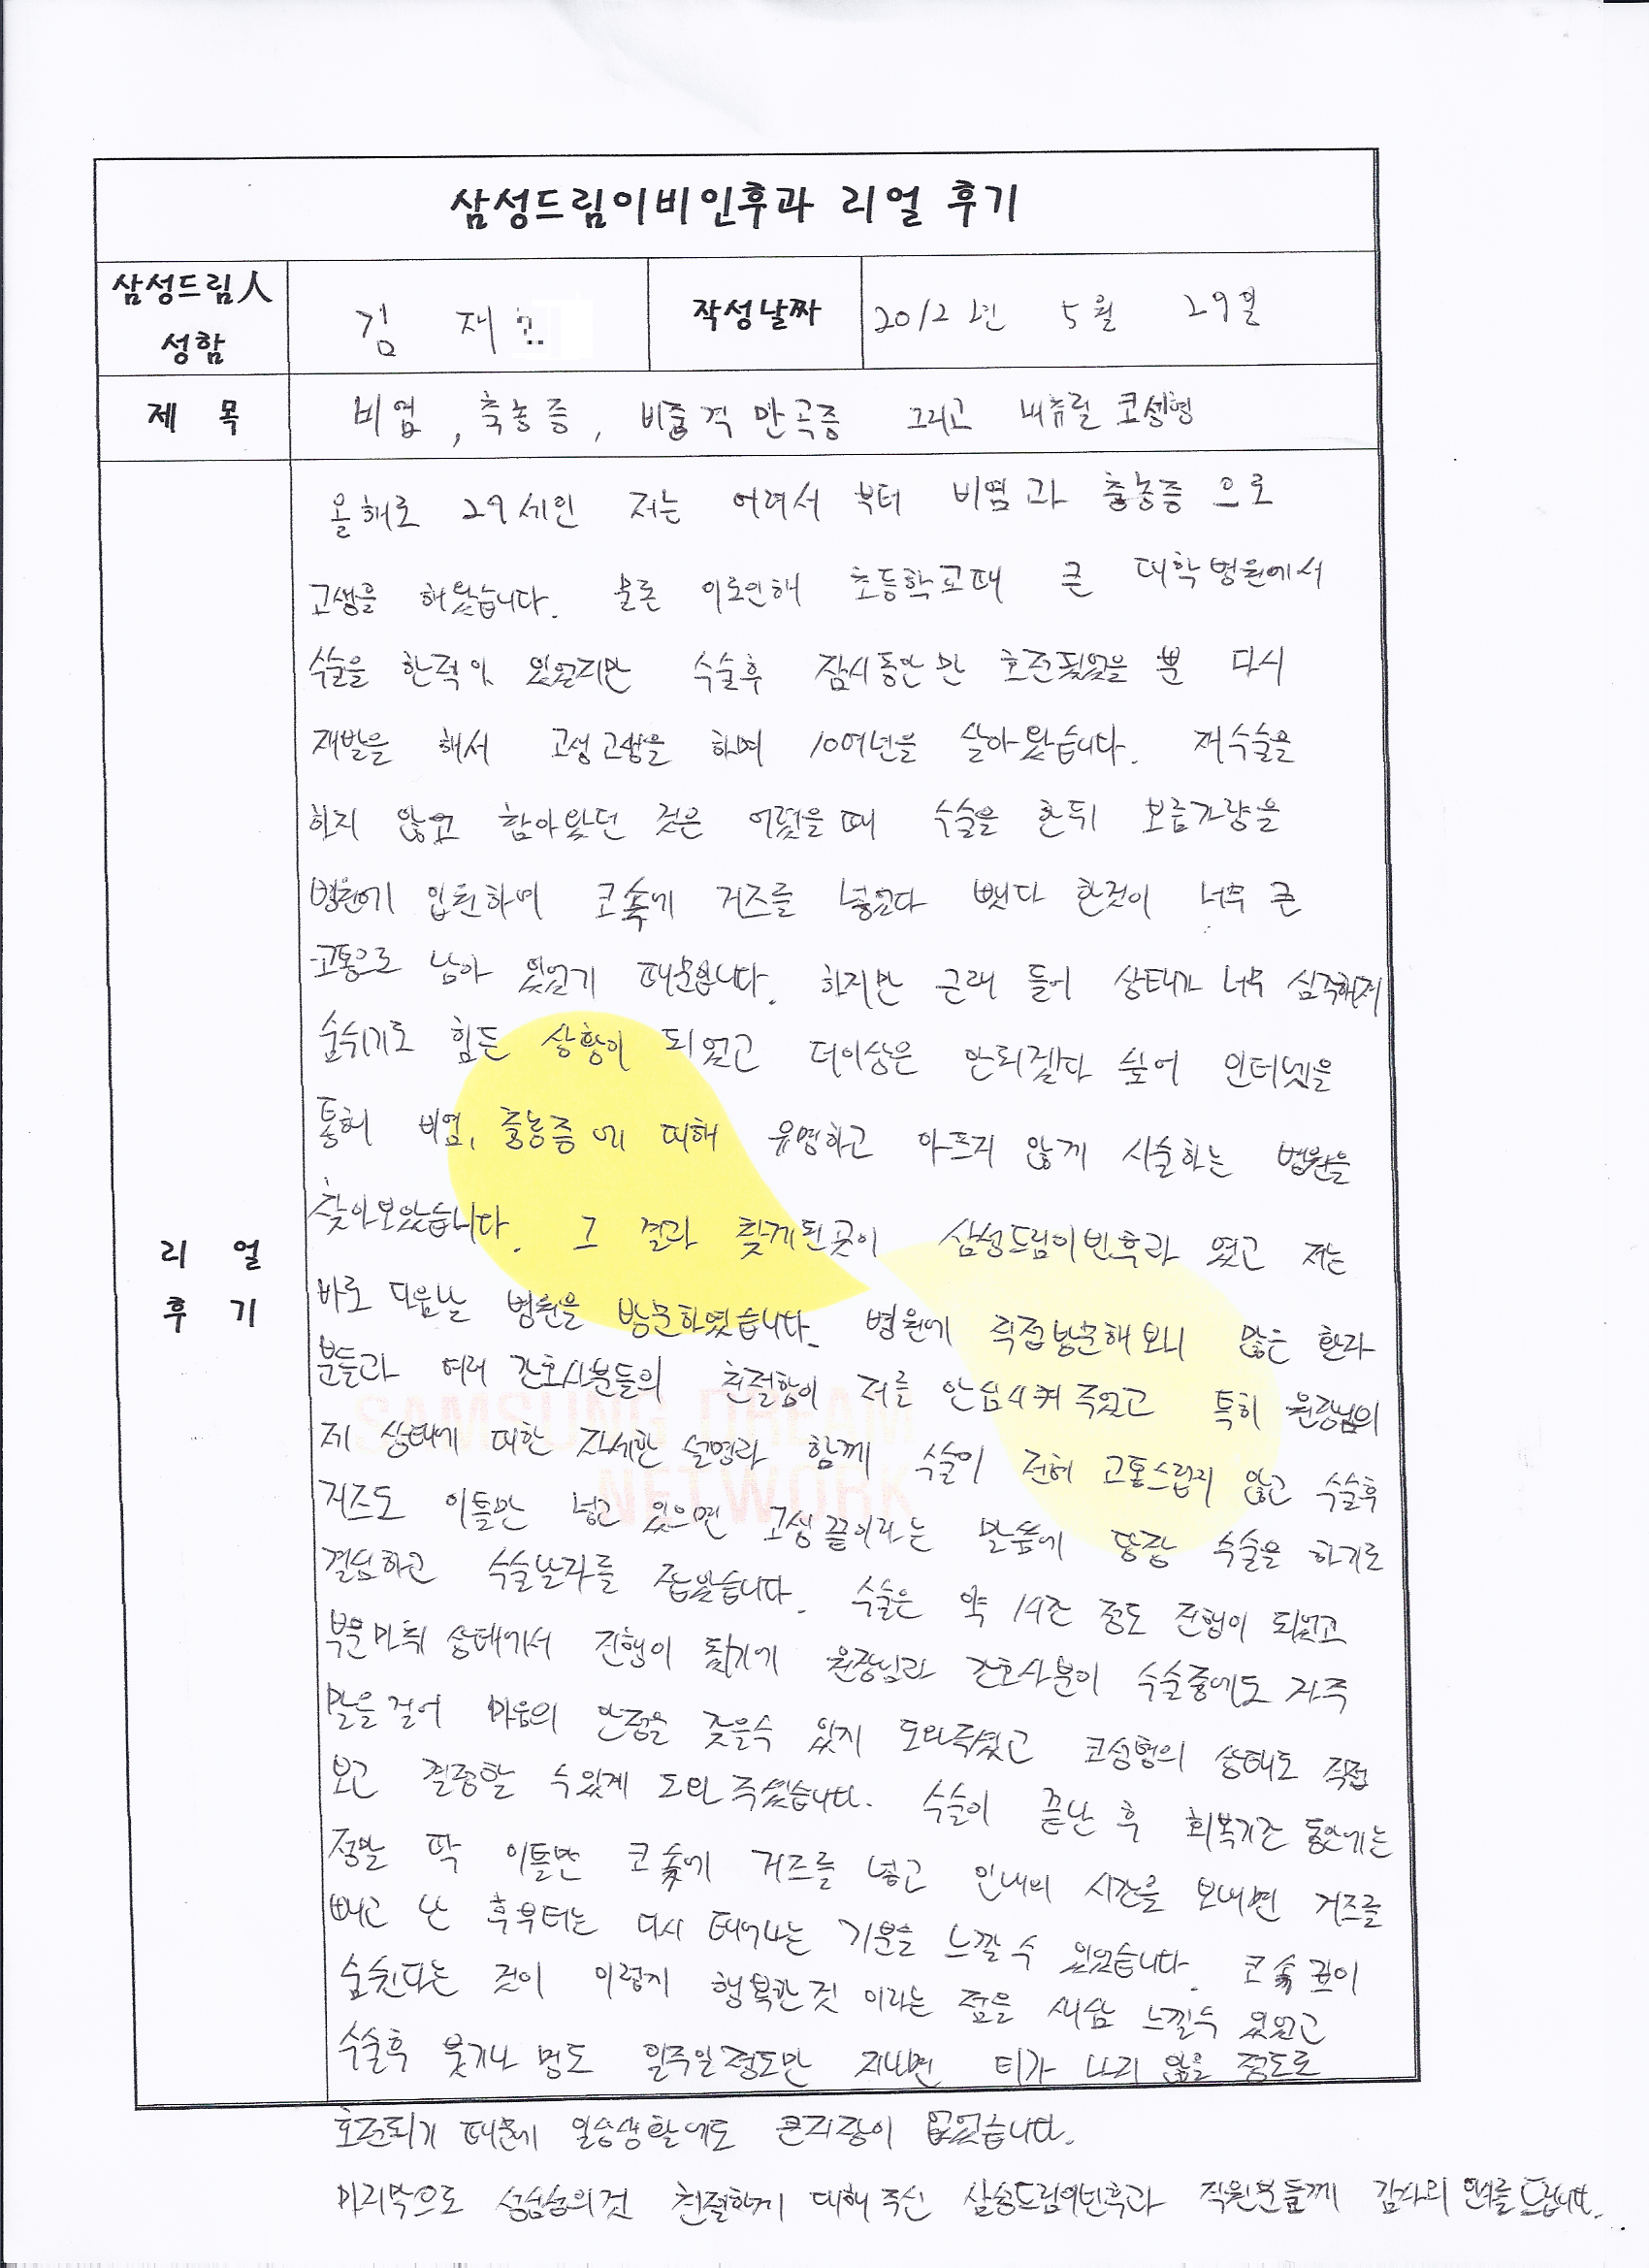 삼성드림이비인후과 리얼 후기
삼성드림人
성함
김 재
작성날짜
2012년 5월 29일
제 목
비염, 축농증, 비중격 만곡증 그리고 내츄럴 코성형
리 얼
후 기
올해로 29세인 저는 어려서 부터 비염과 축농증 으로
고생을 해왔습니다. 물론 이로인해 초등학교때 큰 대학병원에서
수술을 한적이 있었지만 수술후 잠시동안만 호전됬었을 뿐 다시
재발을 해서 고생고생을 하며 10여년을 살아왔습니다. 재수술을
하지 않고 참아왔던 것은 어렸을때 수술을 한뒤 보름가량을
병원에 입원하며 코속에 거즈를 넣었다 뺏다 한것이 너무 큰
고통으로 남아 있었기 때문입니다. 하지만 근래 들어 상태가 너무 심각해져
숨쉬기도 힘든 상황이 되었고 더이상은 안되겠다 싶어 인터넷을
통해 비염, 축농증에 대해 유명하고 아프지 않게 시술하는 병원을
찾아보았습니다. 그 결과 찾게된곳이 삼성드림이빈후과 였고 저는
바로 다음날 병원을 방문하였습니다. 병원에 직접방문해보니 많은 환자
분들과 여러 간호사분들의 친절함이 저를 안심시켜 주었고 특히 원장님의
제 상태에 대한 자세한 설명과 함께 수술이 전혀 고통스럽지 않고 수술후
거즈도 이틀만 넣고 있으면 고생끝이라는 말씀에 당장 수술을 하기로
결심하고 수술날짜를 잡았습니다. 수술은 약 1시간 정도 진행이 되었고
부분마취 상태에서 진행이 됬기에 원장님과 간호사분이 수술중에도 자주
말을걸어 마음의 안정을 찾을수 있게 도와주셨고 코성형의 상태도 직접
보고 결정할 수있게 도와 주셨습니다. 수술이 끝난 후 회복기간 동안에는
정말 딱 이틀만 코속에 거즈를 넣고 인내의 시간을 보내면 거즈를
빼고 난 후부터는 다시 태어나는 기분을 느낄 수 있었습니다. 코
숨쉰다는 것이 이렇게 행복한것 이라는 점을 새삼 느낄수 있었고
수술후 붓기나 멍도 일주일정도만 지나면 티가 나지 않을 정도로
호전되기 때문에 일상생활에도 큰지장이 없었습니다.
마지막으로 성심성의것 친절하게 대해 주신 삼성드림이빈후과 직원분들께 감사의 말을 드립니다.
SAMSUNG DREAM
NETWORK